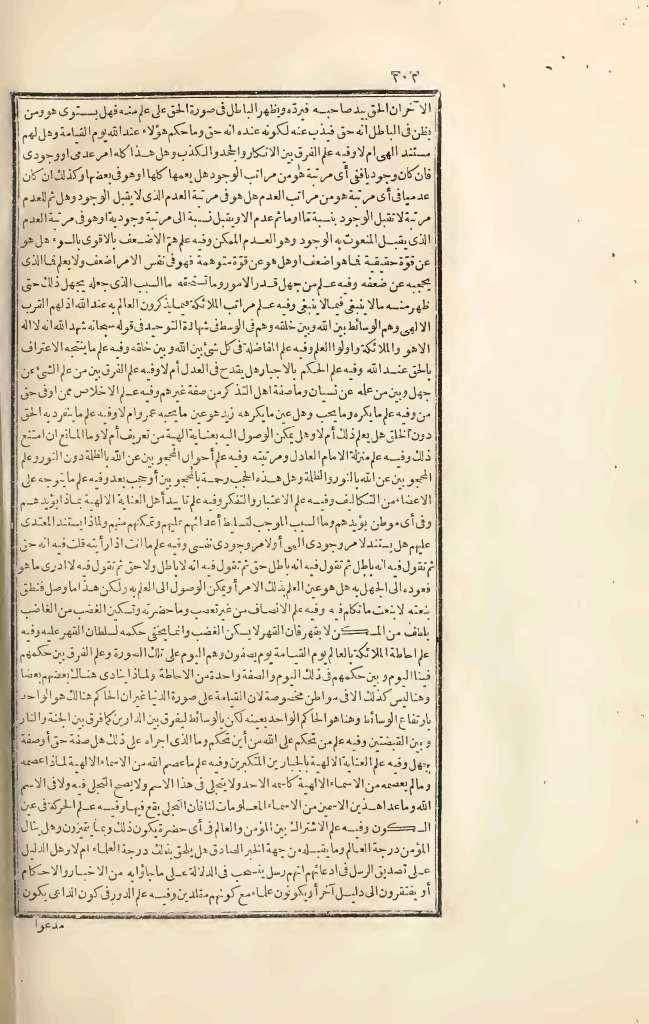 ٣٠٣
الآخران الحق بيد صاحبه فيرده ويظهر الباطل فى صورة الحق على علم منه فهل يستوى هو ومن
يظن فى الباطل انه حق فيذب عنه لكونه عنده انه حق وما حكم هؤلاء عند الله يوم القيامة وهل لهم
مستند الهى ام لا وفيه علم الفرق بين الانكار والجحد والكذب وهل هذا كله امر عدمى او وجودى
فان كان وجوديا ففى أى مرتبة هو من مراتب الوجود هل يعمها كلها او هو فى بعضها وكذلك ان كان
عدميا فى أى مرتبة هو من مراتب العدم هل هو فى مرتبة العدم الذى لا يقبل الوجود وهل ثم للعدم
مرتبة لا تقبل الوجود بنسبة ما او ما ثم عدم الا ويقبل نسبة الى مرتبة وجودية او هو فى مرتبة العدم
الذى يقبل المنعوت به الوجود وهو العدم الممكن وفيه علم هز الاضعف بالاقوى بالسوء هل هو
عن قوة حقيقية فما هو اضعف او هل هو عن قوة متوهمة فهو فى نفس الامر اضعف ولا يعلم فما الذى
يحجبه عن ضعفه وفيه علم من جهل قدر الامور وما تستحقه ما السبب الذى جعله يجهل ذلك حتى
ظهر منه ما لا ينبغى فيما لا ينبغى وفيه علم مراتب الملائكة فيما يذكرون العالم به عند الله اذ لهم القرب
الالهى وهم الوسائط بين الله وبين خلقه وهم فى الوسط فى شهادة التوحيد فى قوله سبحانه شهد الله انه لا اله
الا هو والملائكة واولوا العلم وفيه علم المفاضلة فى كل شئ بين الله وبين خلقه وفيه علم ما ينتجه الاعتراف
بالحق عند الله وفيه علم الحكم بالاجبار هل يقدح فى العدل أم لا وفيه علم الفرق بين من علم الشئ عن
جهل وبين من علمه عن نسيان وما صفة اهل التذكر من صفة غيرهم وفيه علم الاخلاص ممن او فى حق
من وفيه علم ما يكره وما يحب وهل عين ما يكرهه زيد هو عين ما يحبه عمرو ام لا وفيه علم ما ينفرد به الحق
دون الخلق هل يعلم ذلك أم لا وهل يمكن الوصول اليه بعناية الهية من تعريف أم لا وما المانع ان امتنع
ذلك وفيه علم منزلة الامام العادل ومرتبته وفيه علم أحوال المحجوبين عن الله بالظلمة دون النور وعلم
المحجوبين عن الله بالنور والظلمة وهل هذه الحجب رحمة بالمحجوبين أو حجب بعد وفيه علم ما يتوجه على
الاعضاء من التكاليف وفيه علم الاعتبار والتفكر وفيه علم تاييد أهل العناية الالهية بماذا يؤيدهم
وفى أى موطن يؤيدهم وما السبب الموجب لتسليط أعدائهم عليهم وتمكنهم منهم ولماذا يستند المعتدى
عليهم هل يستند لامر وجودى الهى أو لامر وجودى نفسى وفيه علم ما انت اذا رأيته قلت فيه انه حق
ثم تقول فيه انه باطل ثم تقول فيه انه باطل حق ثم تقول فيه انه لا باطل ولا حق ثم تقول فيه لا ادرى ما هو
فعوده الى الجهل به هل هو عين العلم بذلك الامر أو يمكن الوصول الى العلم به ولكن هذا ما وصل فنطق
بنعته لا بنعت ما تكلم فيه وفيه علم الانصاف من غير تعصب وما حضرته وتسكين الغضب من الغاضب
بلطف من المسكن لا بقهر فان القهر لا يسكن الغضب وانما يخفى حكمه لسلطان القهر عليه وفيه
علم احاطة الملائكة بالعالم يوم القيامة يوم يصفون وهم اليوم على تلك الصورة وعلم الفرق بين حكمهم
فينا اليوم وبين حكمهم فى ذلك اليوم والصفة واحدة من الاحاطة ولماذا ينادى هنالك بعضهم بعضا
وهنا ليس كذلك الا فى مواطن مخصوصة لان القيامة على صورة الدنيا غير ان الحاكم هنالك هو الواحد
بارتفاع الوسائط وهنا هو الحاكم الواحد بعينه لكن بالوسائط ليفرق بين الدارين كما فرق بين الجنة والنار
وبين القبضتين وفيه علم من تحكم على الله من أين تحكم وما الذى اجراه على ذلك هل صفة حق أو صفة
جهل وفيه علم العناية الالهية بالجبارين المتكبرين وفيه علم ما عصم الله من الاسماء الالهية لماذا عصمه
وما لم يعصمه من الاسماء الالهية كاسمه الاحد ولا يتجلى فى هذا الاسم ولا يصح التجلى فيه ولا فى الاسم
الله وما عدا هذين الاسمين من الاسماء المعلومات لنا فان التجلى يقع فيها وفيه علم الحركة فى عين
السكون وفيه علم الاشتراك بين المؤمن والعالم فى أى حضرة يكون ذلك وبما يتميزون وهل ينال
المؤمن درجة العالم وما يقبله من جهة الخبر الصادق هل يلحق بذلك درجة العلماء ام لا وهل الدليل
على تصديق الرسل فى ادعائهم انهم رسل ينسحب فى الدلالة على ما جاؤا به من الاخبار والاحكام
أو يفتقرون الى دليل آخر أو يكونون علماء مع كونهم مقلدين وفيه علم الدور فى كون الداعى يكون
مدعوا